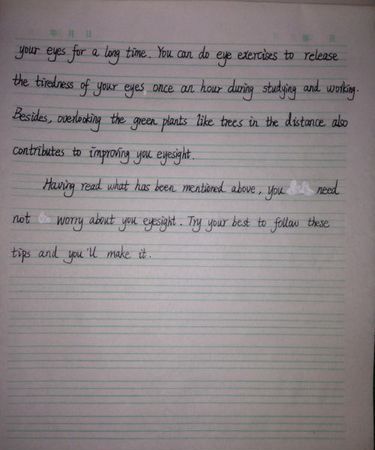 your eyes for a long time. You can do eye exercises to release
the tiredness of your eyes once an hour during studying and working.
Besides, overlooking the green plants like trees in the distance also
contributes to improving you eyesight.
Having read what has been mentioned above, you need
not worry about you eyesight. Try your best to follow these
tips and you'll make it.